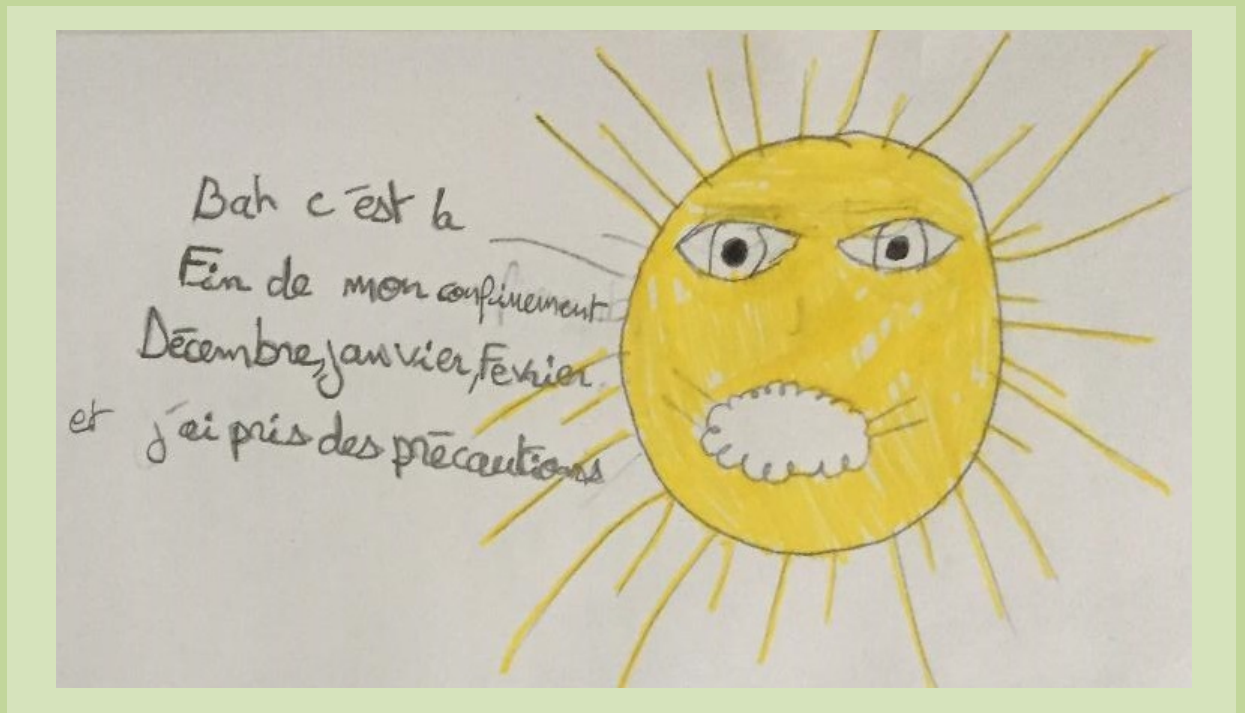 Bah c'est la
Fin de mon confinement
Décembre, janvier, Février
et j'ai pris des précautions